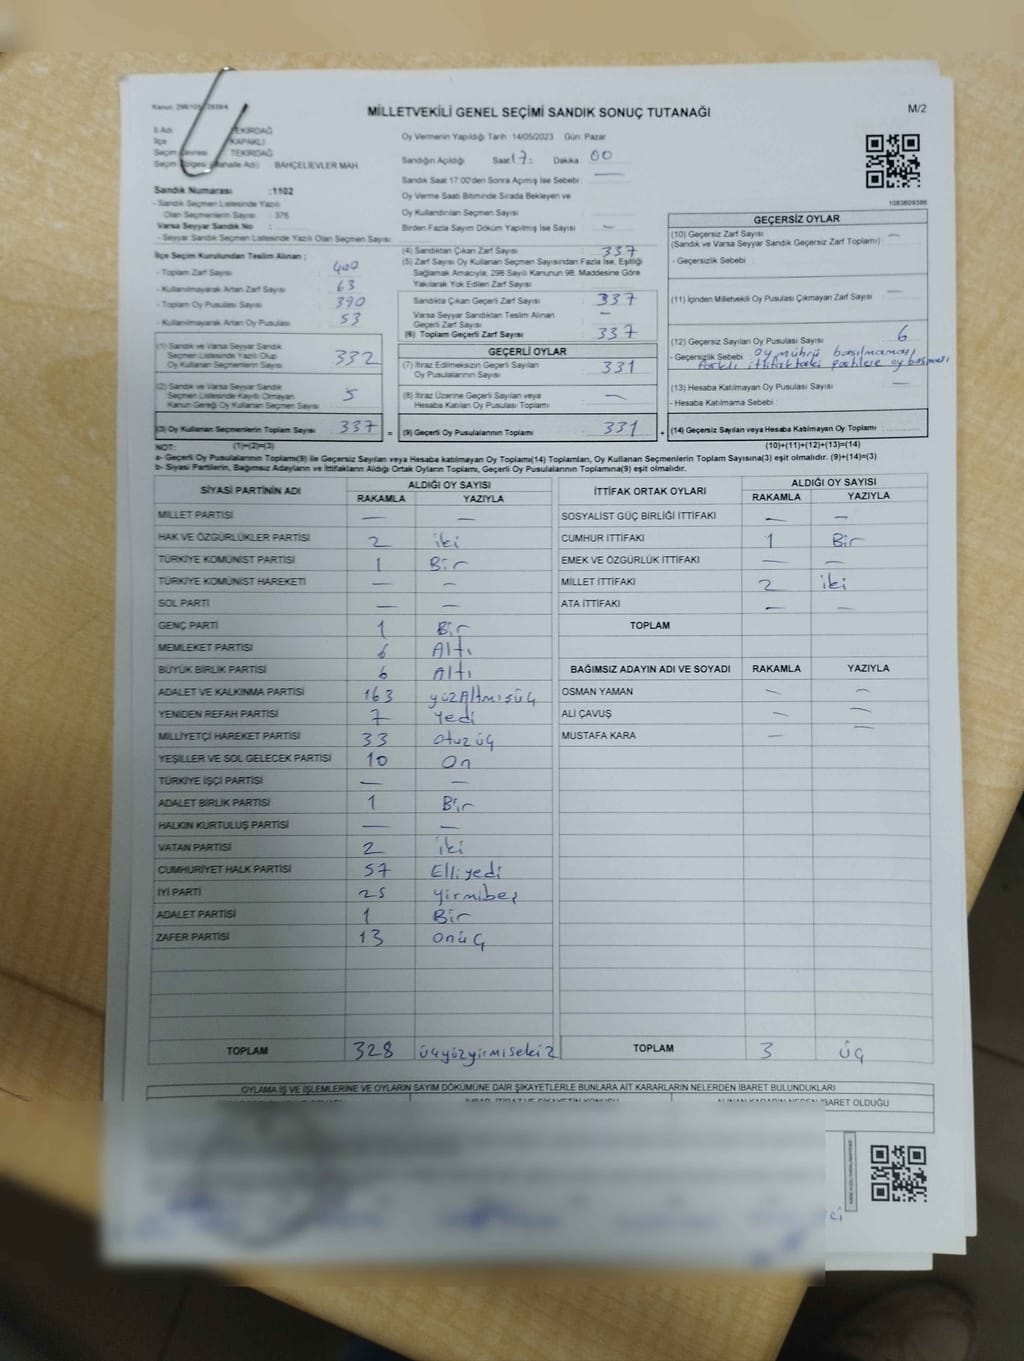 MİLLETVEKİLİ GENEL SEÇİMİ SANDIK SONUÇ TUTANAĞI
M/2
İl Adı TEKİRDAĞ
İlçe KAPAKLI
Seçim Çevresi TEKİRDAĞ
Seçim Bölgesi (Mahalle Adı) BAHÇELİEVLER MAH.
Sandık Numarası :1102
- Sandık Seçmen Listesinde Yazılı
Olan Seçmenlerin Sayısı : 376
Varsa Seyyar Sandık No :
- Seyyar Sandık Seçmen Listesinde Yazılı Olan Seçmen Sayısı :
İlçe Seçim Kurulundan Teslim Alınan ;
- Toplam Zarf Sayısı 400
- Kullanılmayarak Artan Zarf Sayısı 63
- Toplam Oy Pusulası Sayısı 390
- Kullanılmayarak Artan Oy Pusulası 53
(1) Sandık ve Varsa Seyyar Sandık
Seçmen Listesinde Yazılı Olup
Oy Kullanan Seçmenlerin Sayısı 332
(2) Sandık ve Varsa Seyyar Sandık
Seçmen Listesinde Kaydı Olmayan
Kanun Gereği Oy Kullanan Seçmen Sayısı 5
(3) Oy Kullanan Seçmenlerin Toplam Sayısı 337 =
Oy Vermenin Yapıldığı Tarih :14/05/2023 Gün: Pazar
Sandığın Açıldığı Saat 17: Dakika 00
Sandık Saat 17:00'den Sonra Açılmış İse Sebebi : —
Oy Verme Saati Bitiminde Sırada Bekleyen ve
Oy Kullandırılan Seçmen Sayısı
Birden Fazla Sayım Döküm Yapılmış İse Sayısı : —
(4) Sandıktan Çıkan Zarf Sayısı : 337
(5) Zarf Sayısı Oy Kullanan Seçmen Sayısından Fazla İse, Eşitliği
Sağlamak Amacıyla; 298 Sayılı Kanunun 98. Maddesine Göre
Yakılarak Yok Edilen Zarf Sayısı :
Sandıkta Çıkan Geçerli Zarf Sayısı : 337
Varsa Seyyar Sandıktan Teslim Alınan
Geçerli Zarf Sayısı : —
(6) Toplam Geçerli Zarf Sayısı : 337
GEÇERLİ OYLAR
(7) İtiraz Edilmeksizin Geçerli Sayılan
Oy Pusulalarının Sayısı : 331
(8) İtiraz Üzerine Geçerli Sayılan veya
Hesaba Katılan Oy Pusulası Toplamı : —
(9) Geçerli Oy Pusulalarının Toplamı : 331 +
1083609386
GEÇERSİZ OYLAR
(10) Geçersiz Zarf Sayısı : —
(Sandık ve Varsa Seyyar Sandık Geçersiz Zarf Toplamı)
- Geçersizlik Sebebi :
(11) İçinden Milletvekili Oy Pusulası Çıkmayan Zarf Sayısı : —
(12) Geçersiz Sayılan Oy Pusulası Sayısı : 6
- Geçersizlik Sebebi : Oy mührü basılmaması
farklı ittifaktaki partilere oy basması
(13) Hesaba Katılmayan Oy Pusulası Sayısı : —
- Hesaba Katılmama Sebebi :
(14) Geçersiz Sayılan veya Hesaba Katılmayan Oy Toplamı :
NOT: (1)+(2)=(3) (10)+(11)+(12)+(13)=(14)
a- Geçerli Oy Pusulalarının Toplamı(9) ile Geçersiz Sayılan veya Hesaba katılmayan Oy Toplamı(14) Toplamları, Oy Kullanan Seçmenlerin Toplam Sayısına(3) eşit olmalıdır. (9)+(14)=(3)
b- Siyasi Partilerin, Bağımsız Adayların ve İttifakların Aldığı Ortak Oyların Toplamı, Geçerli Oy Pusulalarının Toplamına(9) eşit olmalıdır.
SİYASİ PARTİNİN ADI ALDIĞI OY SAYISI
RAKAMLA YAZIYLA
MİLLET PARTİSİ — —
HAK VE ÖZGÜRLÜKLER PARTİSİ 2 iki
TÜRKİYE KOMÜNİST PARTİSİ 1 Bir
TÜRKİYE KOMÜNİST HAREKETİ — —
SOL PARTİ — —
GENÇ PARTİ 1 Bir
MEMLEKET PARTİSİ 6 Altı
BÜYÜK BİRLİK PARTİSİ 6 Altı
ADALET VE KALKINMA PARTİSİ 163 yüzAltmışüç
YENİDEN REFAH PARTİSİ 7 Yedi
MİLLİYETÇİ HAREKET PARTİSİ 33 otuzüç
YEŞİLLER VE SOL GELECEK PARTİSİ 10 On
TÜRKİYE İŞÇİ PARTİSİ — —
ADALET BİRLİK PARTİSİ 1 Bir
HALKIN KURTULUŞ PARTİSİ — —
VATAN PARTİSİ 2 iki
CUMHURİYET HALK PARTİSİ 57 Elliyedi
İYİ PARTİ 25 yirmibeş
ADALET PARTİSİ 1 Bir
ZAFER PARTİSİ 13 onüç
TOPLAM 328 üçyüzyirmisekiz
İTTİFAK ORTAK OYLARI ALDIĞI OY SAYISI
RAKAMLA YAZIYLA
SOSYALİST GÜÇ BİRLİĞİ İTTİFAKI — —
CUMHUR İTTİFAKI 1 Bir
EMEK VE ÖZGÜRLÜK İTTİFAKI — —
MİLLET İTTİFAKI 2 iki
ATA İTTİFAKI — —
TOPLAM
BAĞIMSIZ ADAYIN ADI VE SOYADI RAKAMLA YAZIYLA
OSMAN YAMAN — —
ALİ ÇAVUŞ — —
MUSTAFA KARA — —
TOPLAM 3 üç
OYLAMA İŞ VE İŞLEMLERİNE VE OYLARIN SAYIM DÖKÜMÜNE DAİR ŞİKAYETLERLE BUNLARA AİT KARARLARIN NELERDEN İBARET BULUNDUKLARI
ALINAN KARARIN NEDEN İBARET OLDUĞU